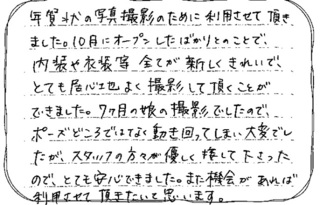 年賀状の写真撮影のために利用させて頂き
ました。10月にオープンしたばかりとのことで、
内装や衣装等 全てが新しくきれいで、
とても居心地よく撮影して頂くことが
できました。7ヶ月の娘の撮影でしたので、
ポーズどころではなく動き回ってしまい大変でし
たが、スタッフの方々が優しく接して下さった
ので、とても安心できました。また機会があれば
利用させて頂きたいと思います。